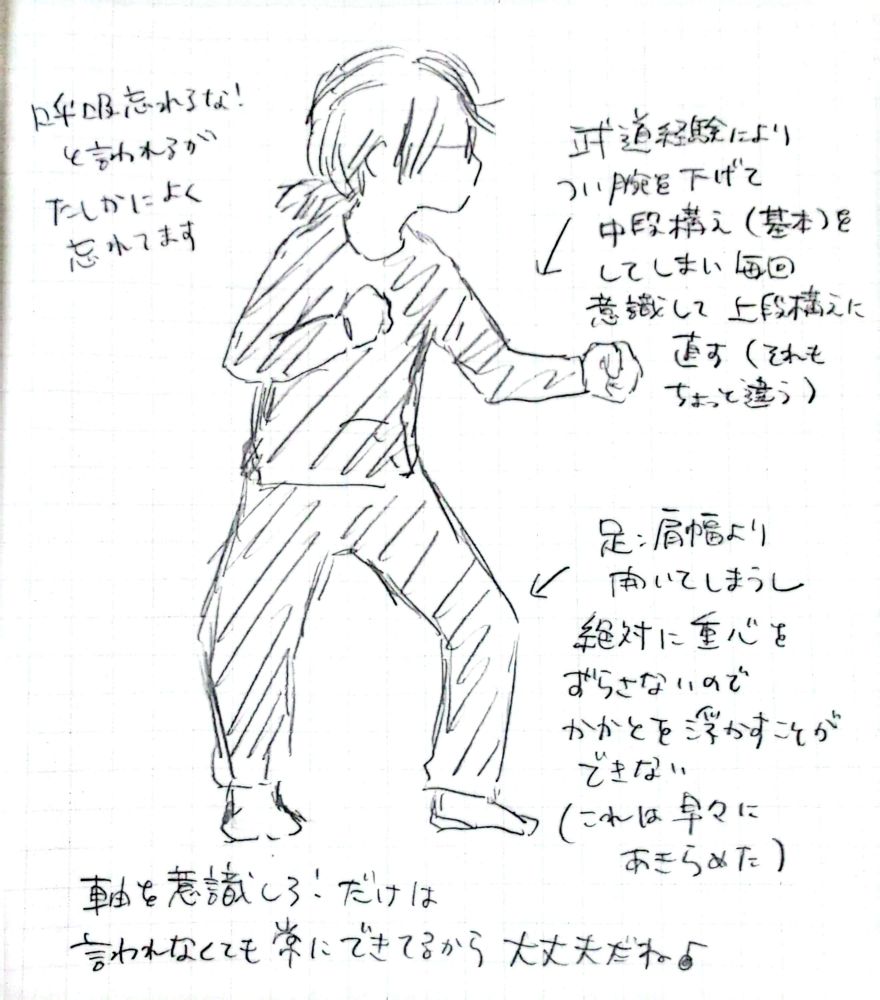 呼吸忘れるな!
と言われるが
たしかによく
忘れてます
武道経験により
つい腕を下げて
中段構え(基本)を
してしまい毎回
意識して上段構えに
直す(それも
ちょっと違う)
足:肩幅より
開いてしまうし
絶対に重心を
ずらさないので
かかとを浮かすことが
できない
(これは早々に
あきらめた)
軸を意識しろ!だけは
言われなくても常にできてるから大丈夫だね♪